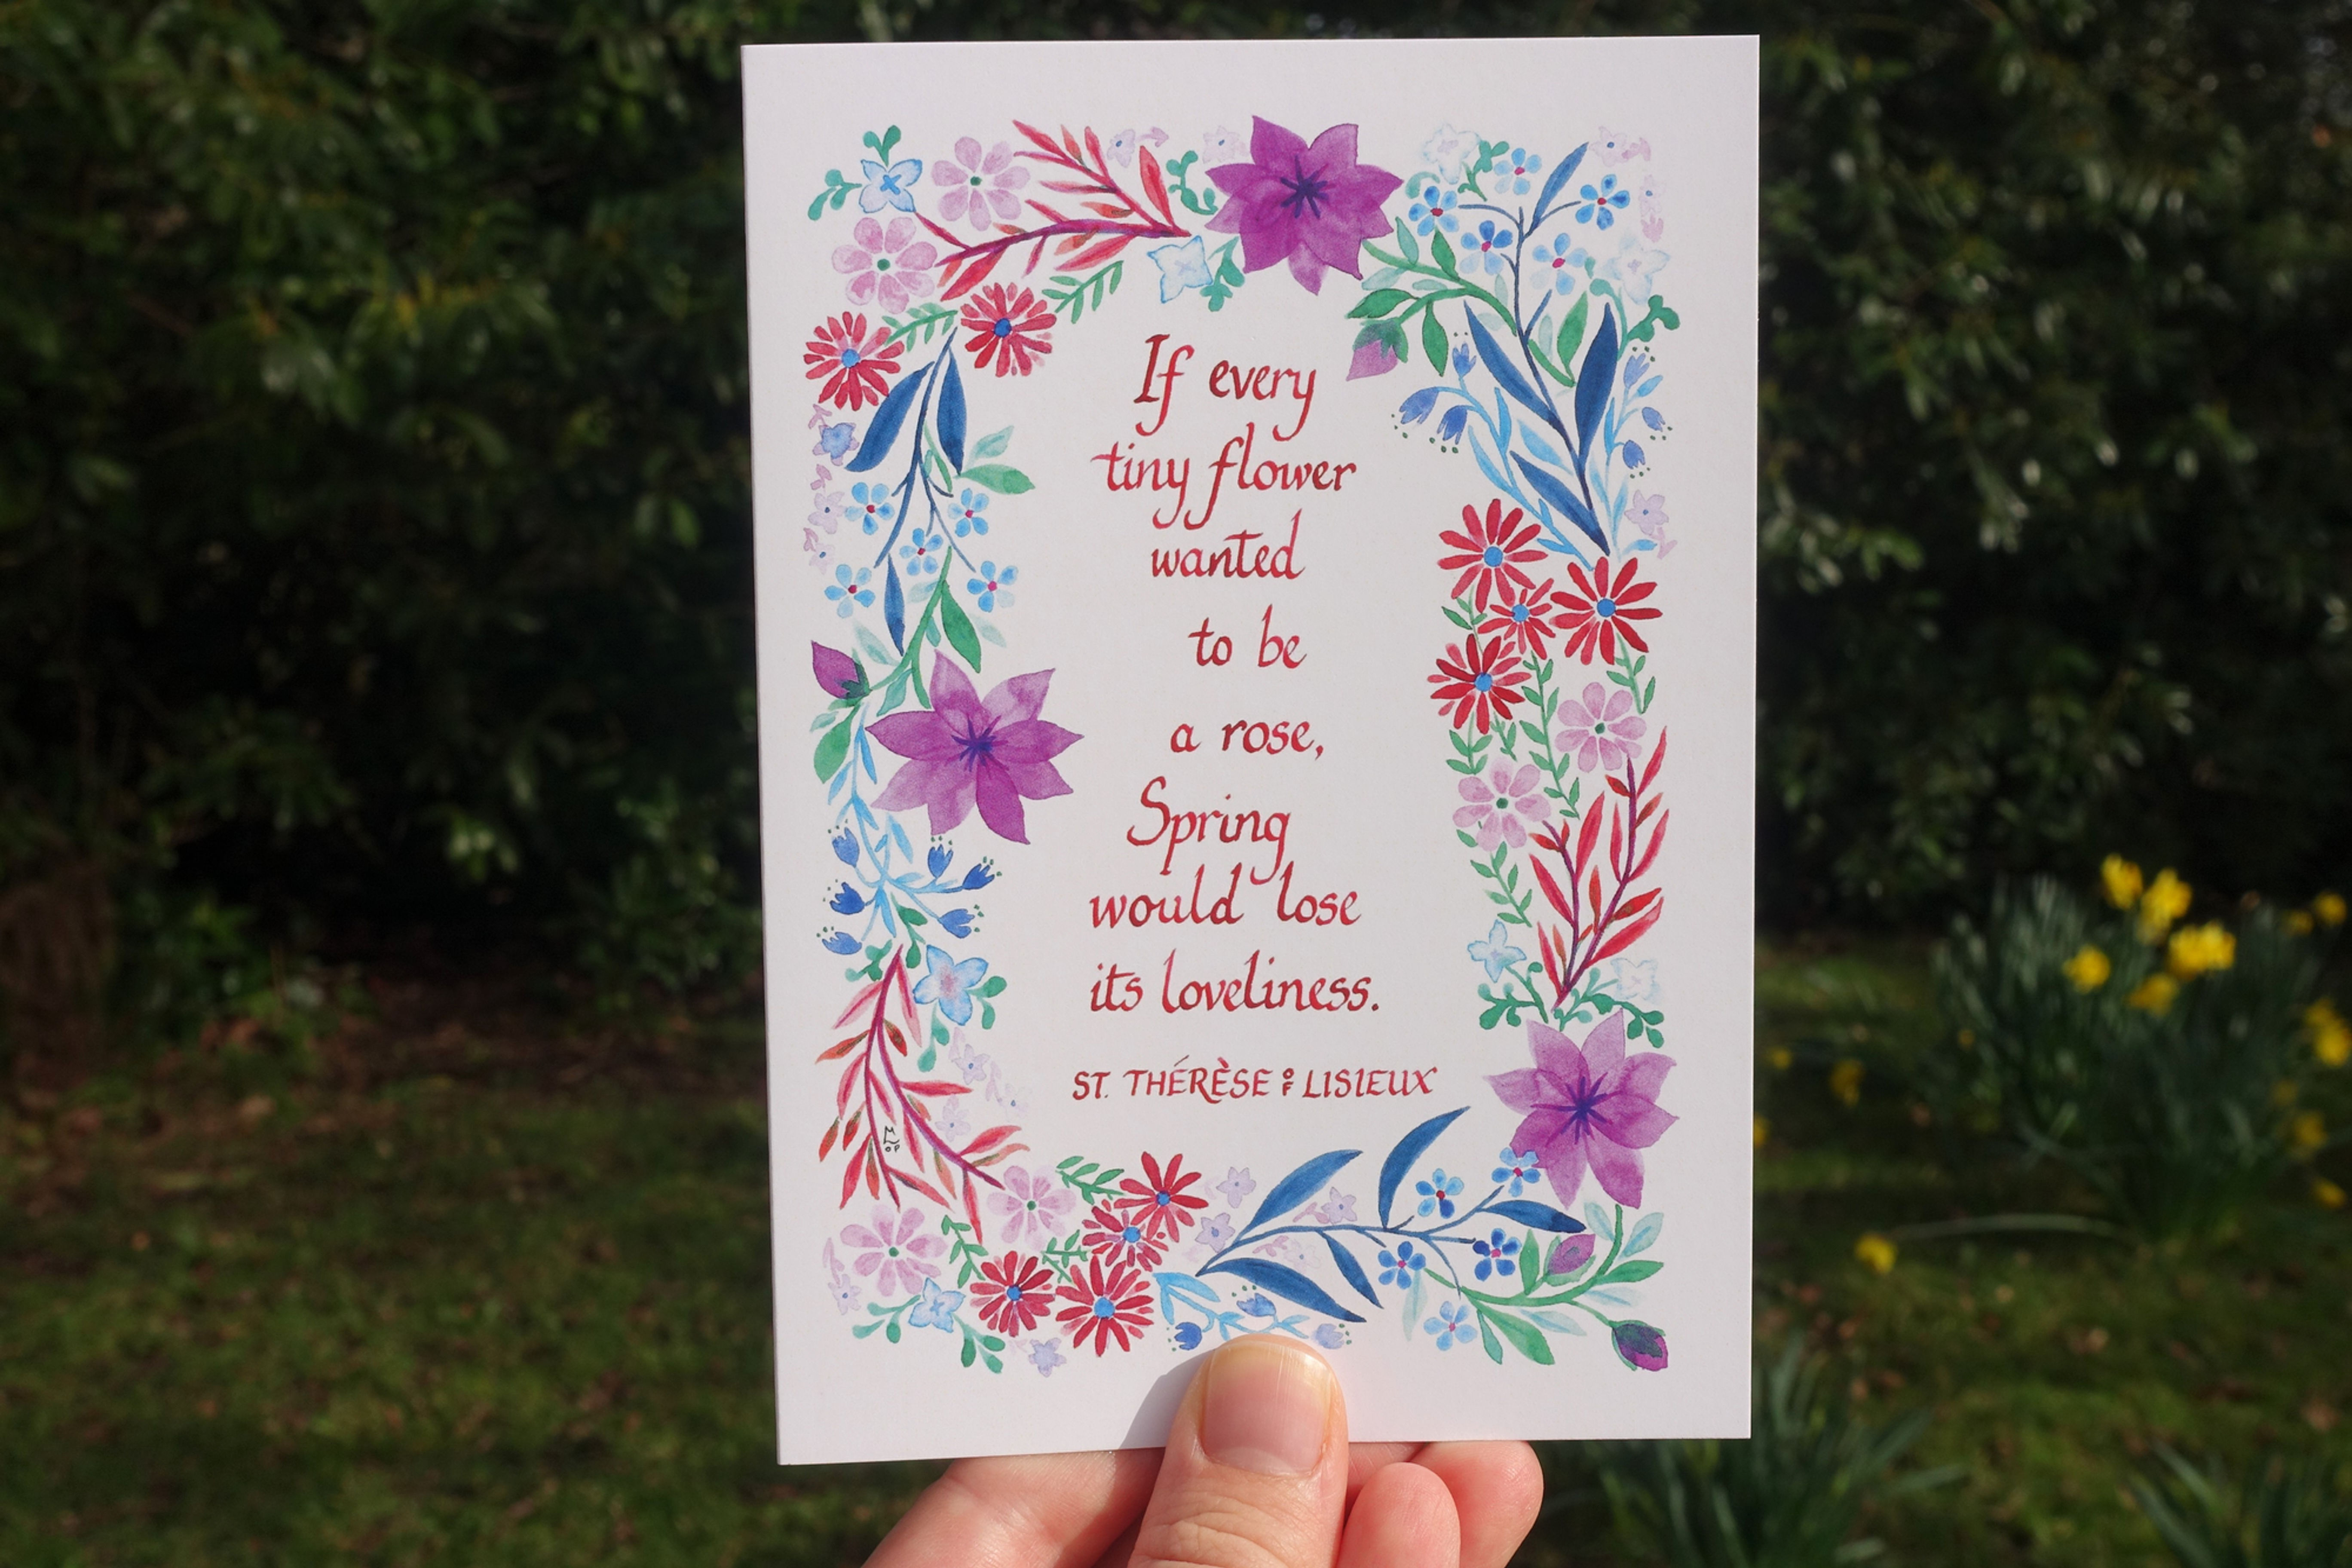 If every
tiny flower
wanted
to be
a rose,
Spring
would lose
its loveliness.
ST. THÉRÈSE OF LISIEUX